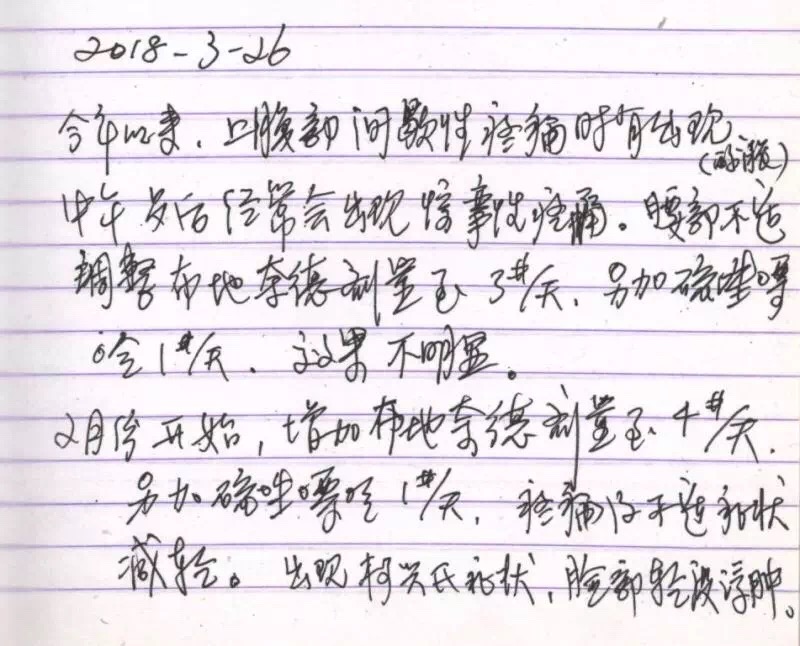 2018-3-26
今年以来，上腹部间歇性疼痛时有出现
中午 后经常会出现痉挛性疼痛。腰部不适
调整布地奈德剂量至3#/天，另加硫唑嘌
呤1#/天，效果不明显。
2月份开始，增加布地奈德剂量至4#/天，
另加硫唑嘌呤1#/天，疼痛及不适症状
减轻。出现柯兴氏症状，脸部轻度浮肿。